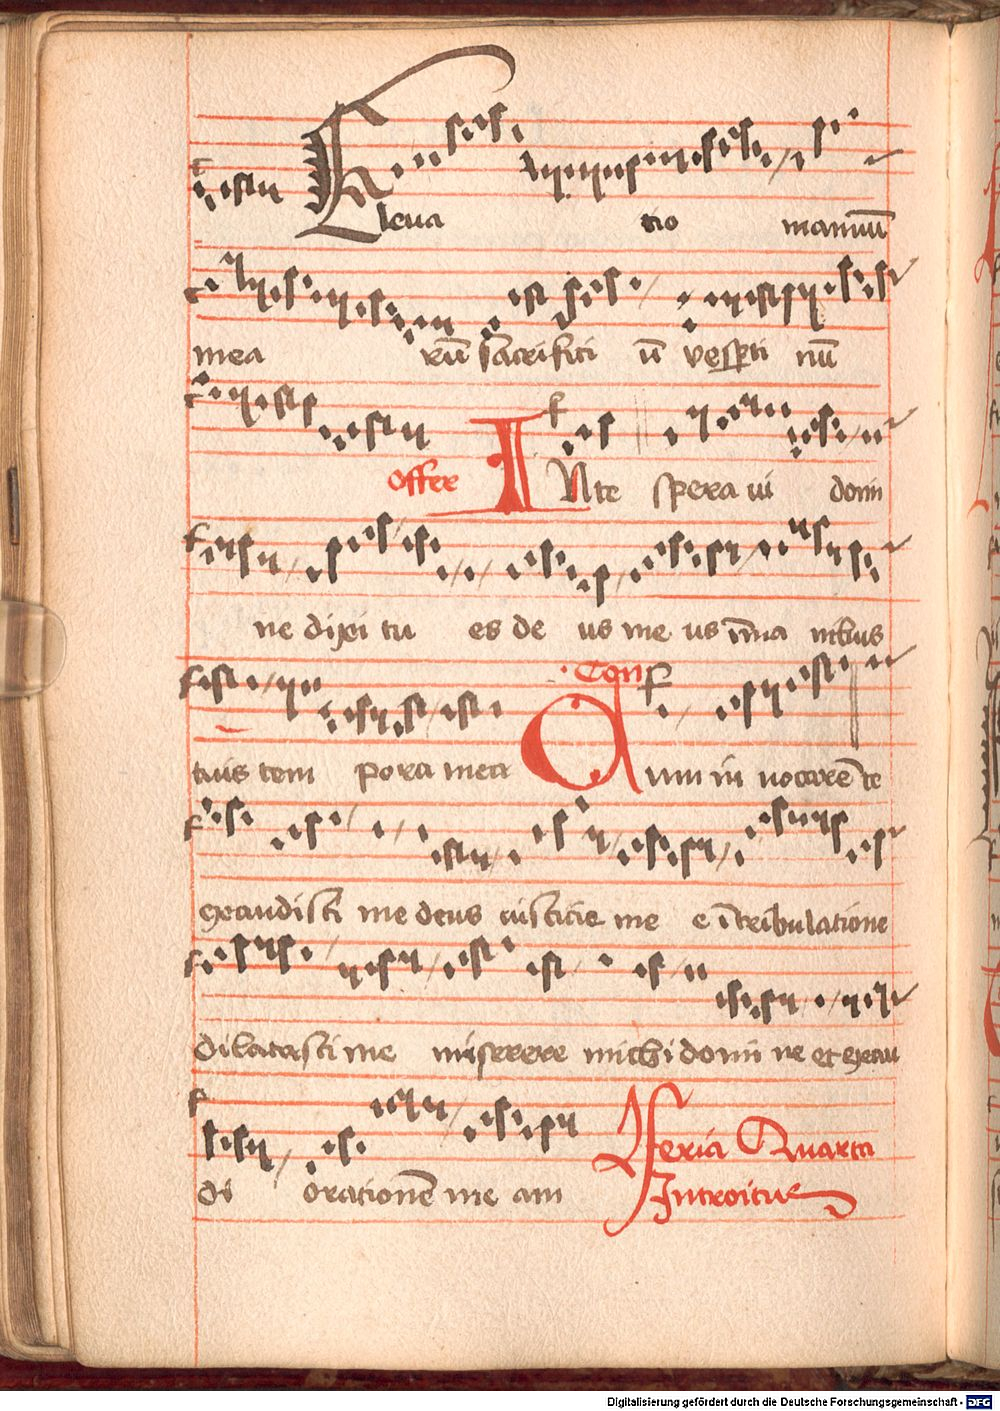 Eleua tio manuū
mea rū sacrifici ū vesperti nū
offer INte spera ui domi
ne dixi tu es de us me us ī ma nibus
tuis tem pora mea Con Cum in uocarē te
exaudisti me deus iusticie me e ītribulatione
dilatasti me miserere michi domi ne et exau
di orationē me am feria Quarta
Introitus
Digitalisierung gefördert durch die Deutsche Forschungsgemeinschaft - DFG